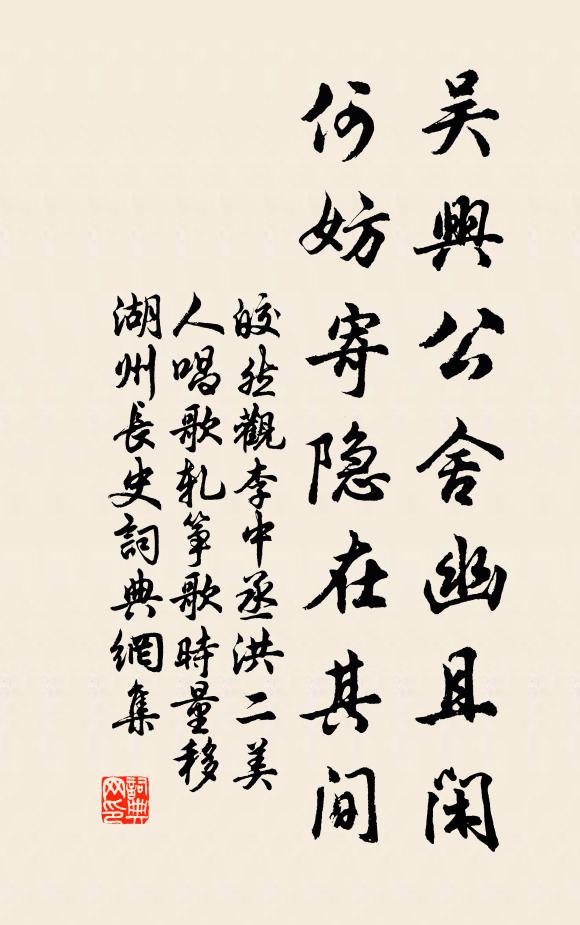 吴興公舍幽且闲
何妨寄隐在其间
皎然觀李中丞洪二美
人唱歌軋筝歌時量移
湖州長史詞典網集
詞典
网印